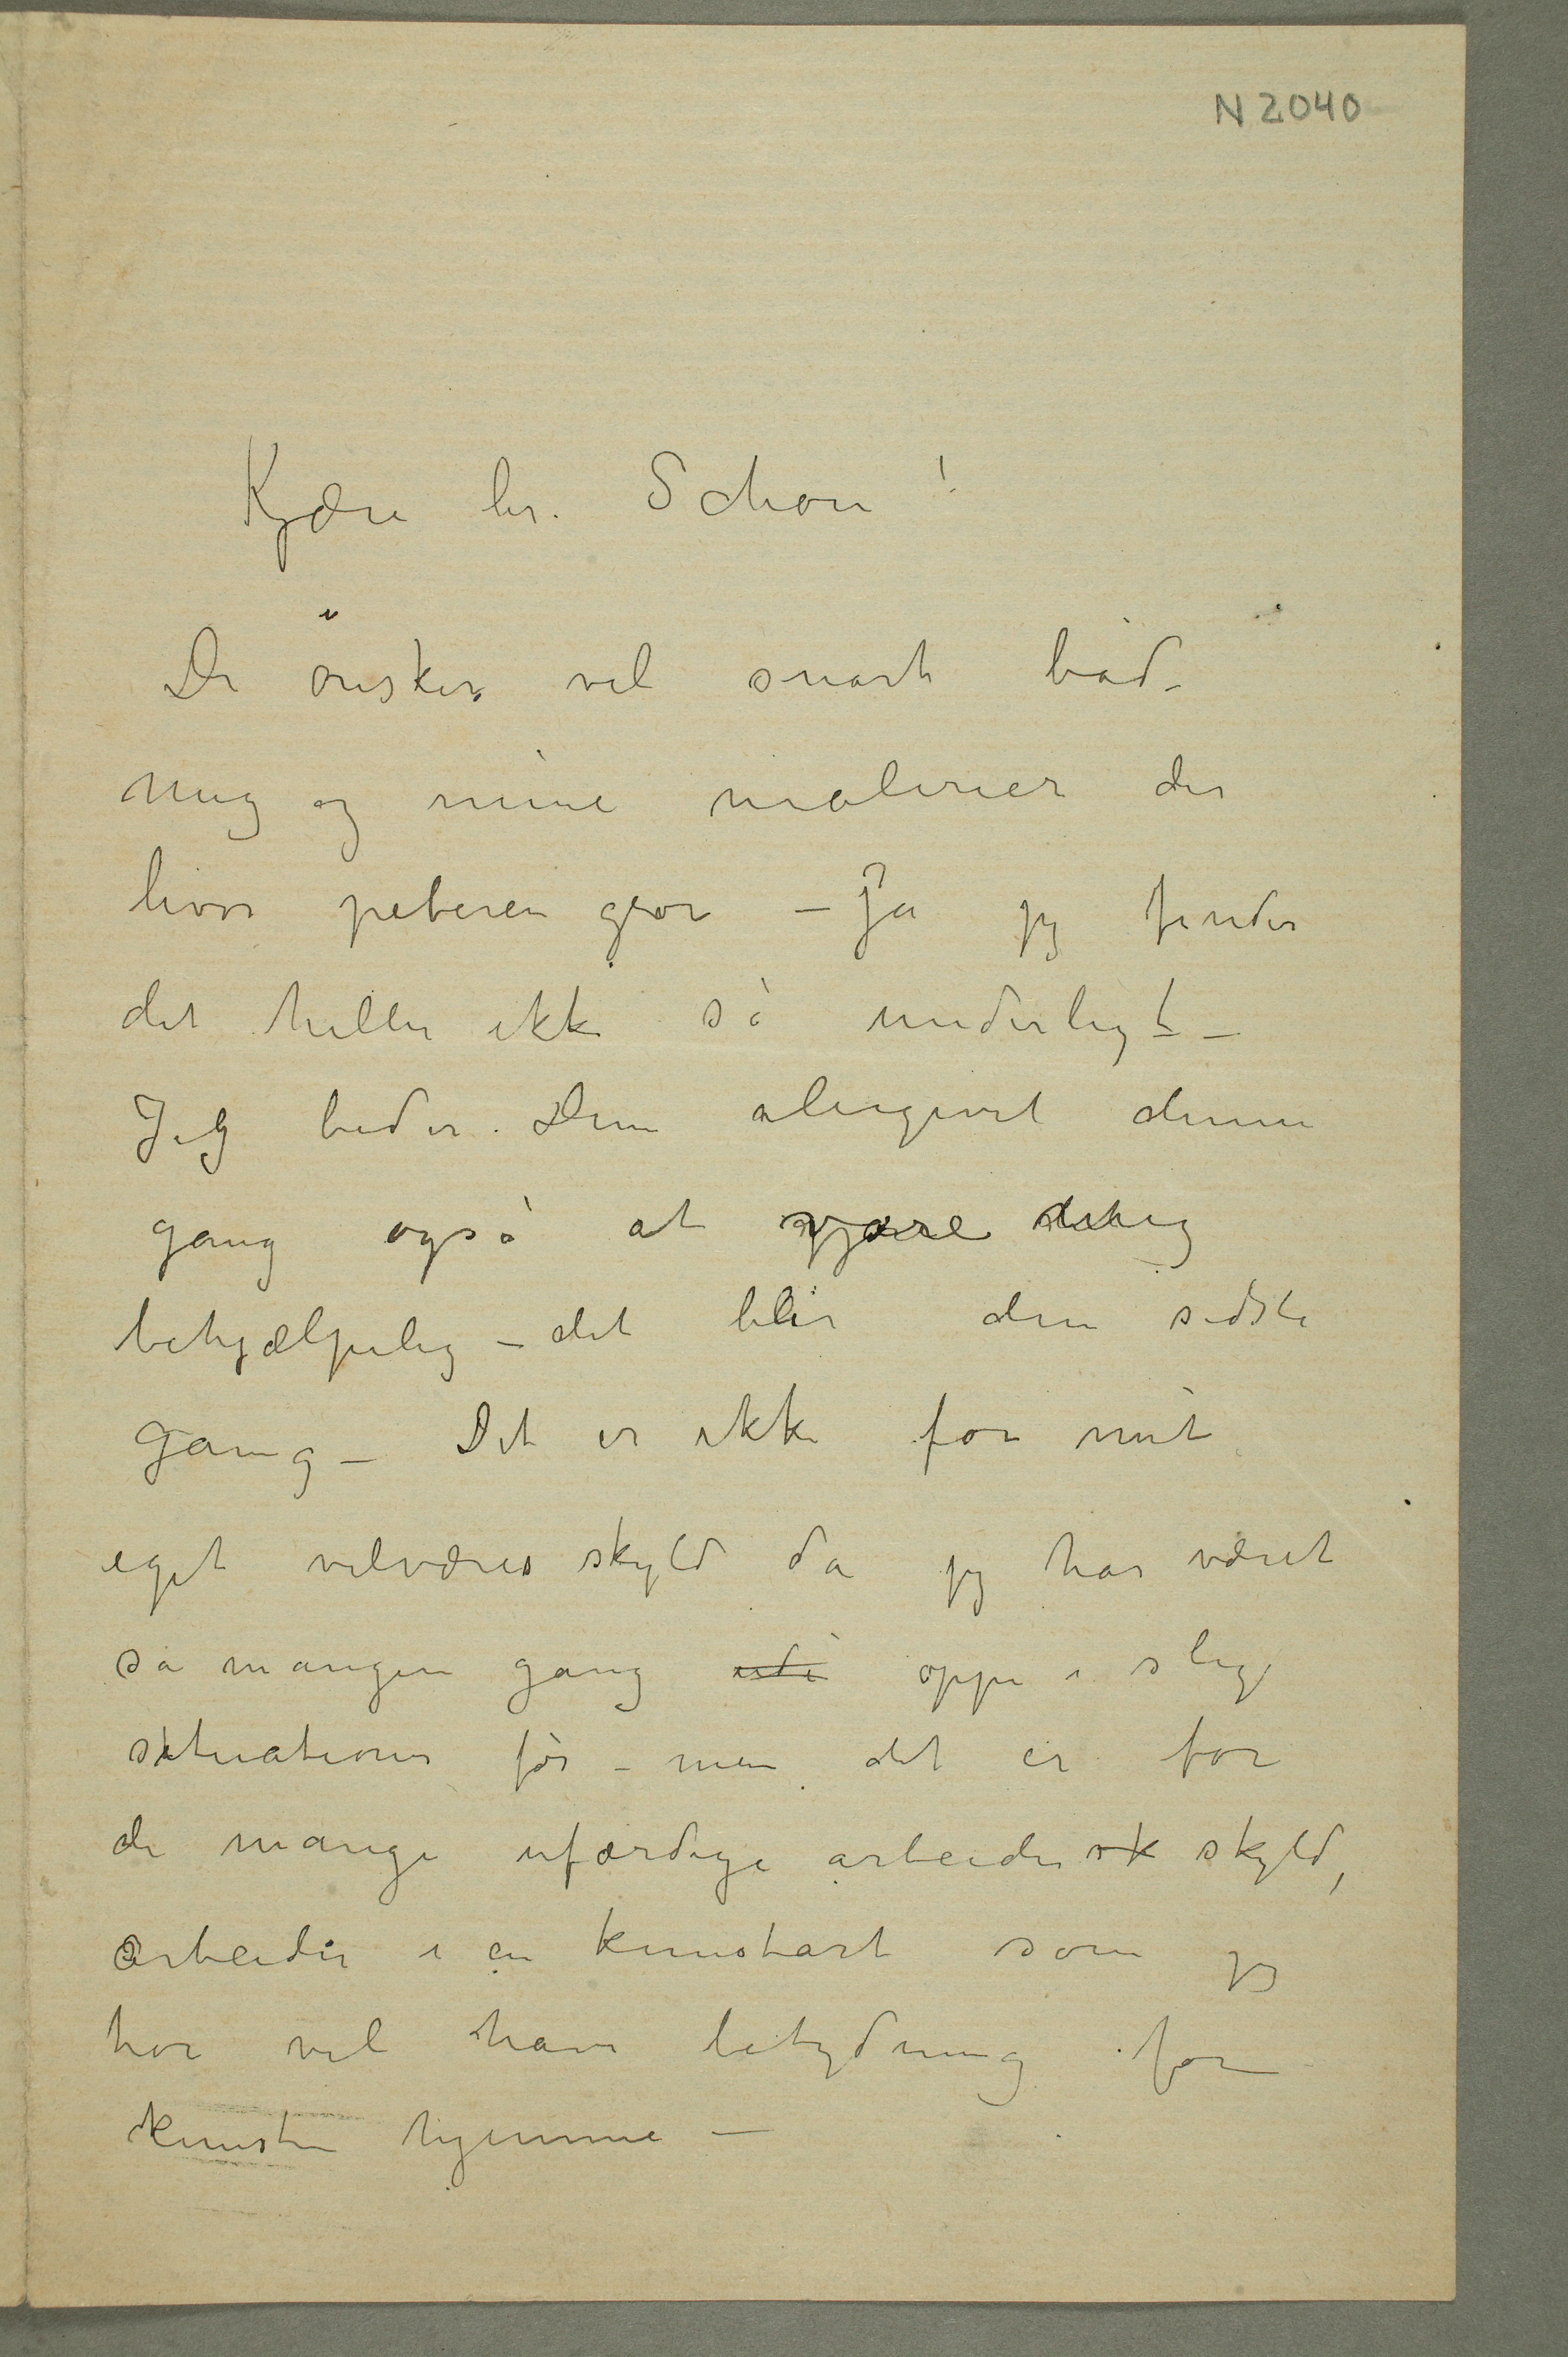 N 2040
Kjære hr. Schou!
De ønsker vel snart både
mig og mine malerier der
hvor peberen gror – Ja jeg finder
det heller ikke så underligt –
Jeg beder Dem alligevel denne
gang også at være mig
behjælpelig – det blir den sidste
gang – Det er ikke for mit
eget velværes skyld da jeg har været
så mangen gang udi oppe i slige
situationer før – men det er for
de mange ufærdige arbeider sk skyld,
arbeider i en kunstart som jeg
tror vil have betydning for
kunsten hjemme –